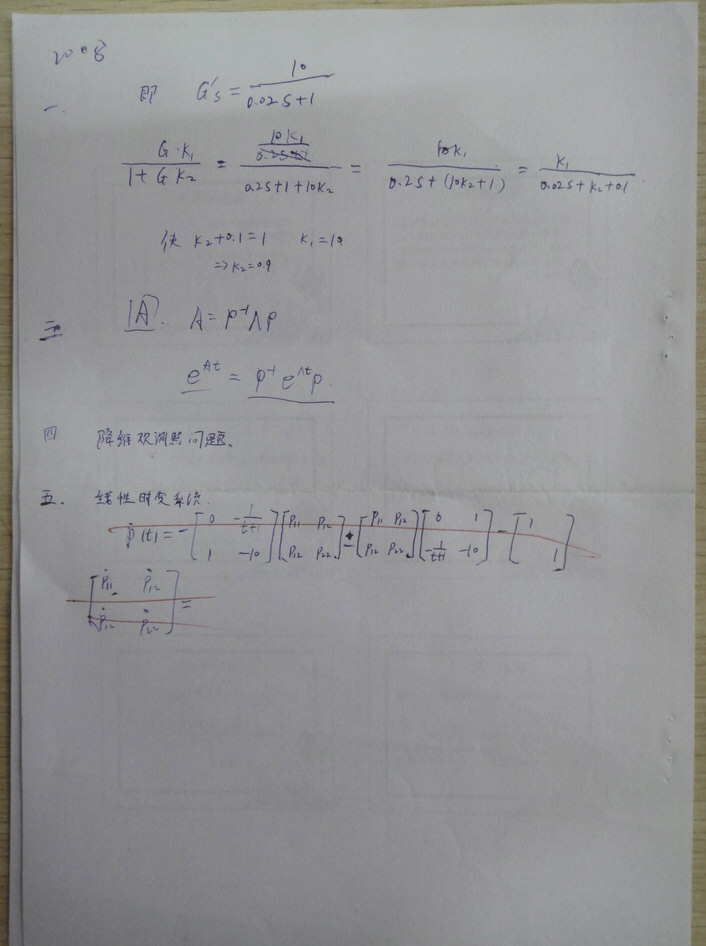 2008
一. 即 G's = 10/(0.02S+1)
G·K₁/(1+GK₂) = 10K₁/(0.2S+1+10K₂) = 10K₁/(0.2S+(10K₂+1)) = K₁/(0.02S+K₂+0.1).
使 K₂+0.1=1 K₁=10
⇒K₂=0.9
三 |A|. A=P⁻¹ΛP
e^{At} = P⁻¹e^{Λt}P.
四 降维观测器问题.
五. 线性时变系统.
Ṗ(t)=-[0 -1/(t+1); 1 -10][P₁₁ P₁₂; P₁₂ P₂₂]-[P₁₁ P₁₂; P₁₂ P₂₂][0 1; -1/(t+1) -10]-[1 ; 1]
[Ṗ₁₁ Ṗ₁₂; Ṗ₁₂ Ṗ₂₂]=